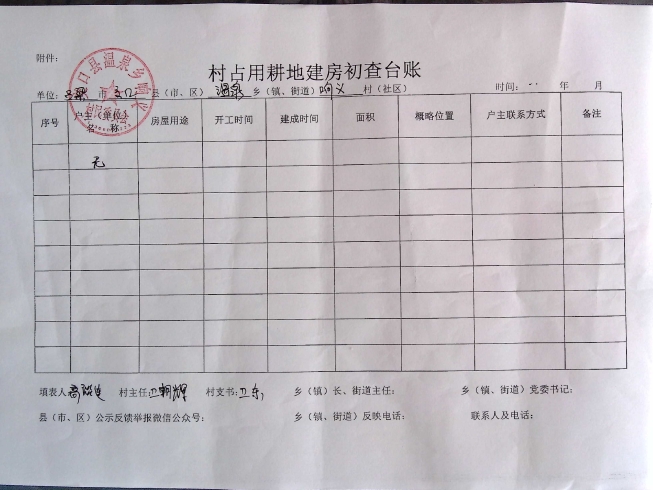 附件：
村占用耕地建房初查台账
单位：吕梁 市 交口 县（市、区） 温泉 乡（镇、街道）响义 村（社区） 时间： 年 月
序号 户主（单位）名 称 房屋用途 开工时间 建成时间 面积 概略位置 户主联系方式 备注
无
填表人： 村主任：卫朝辉 村支书：卫东 乡（镇）长、街道主任： 乡（镇、街道）党委书记：
县（市、区）公示反馈举报微信公众号： 乡（镇、街道）反映电话： 联系人及电话：